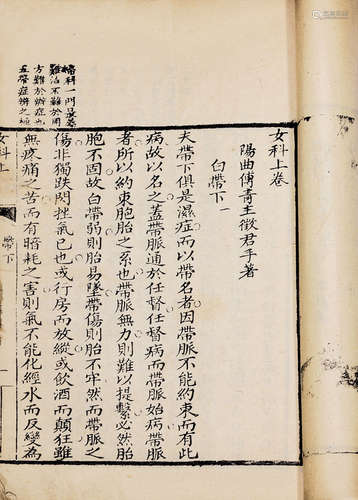 女科上卷
陽曲傅青主徵君手著
白帶下一
夫帶下俱是濕症而以帶名者因帶脈不能約束而有此
病故以名之蓋帶脈通於任督任督病而帶脈始病帶脈
者所以約束胞胎之系也帶脈無力則難以提繫必然胎
胞不固故白帶弱則胎易墜帶傷則胎不牢然而帶脈之
傷非獨跌閃挫氣已也或行房而放縱或飲酒而顛狂雖
無疼痛之苦而有暗耗之害則氣不能化經水而反變為
婦科一門最為
難治不難於用
方難於辦症也
五帶症辨之極
女科上
帶下
一